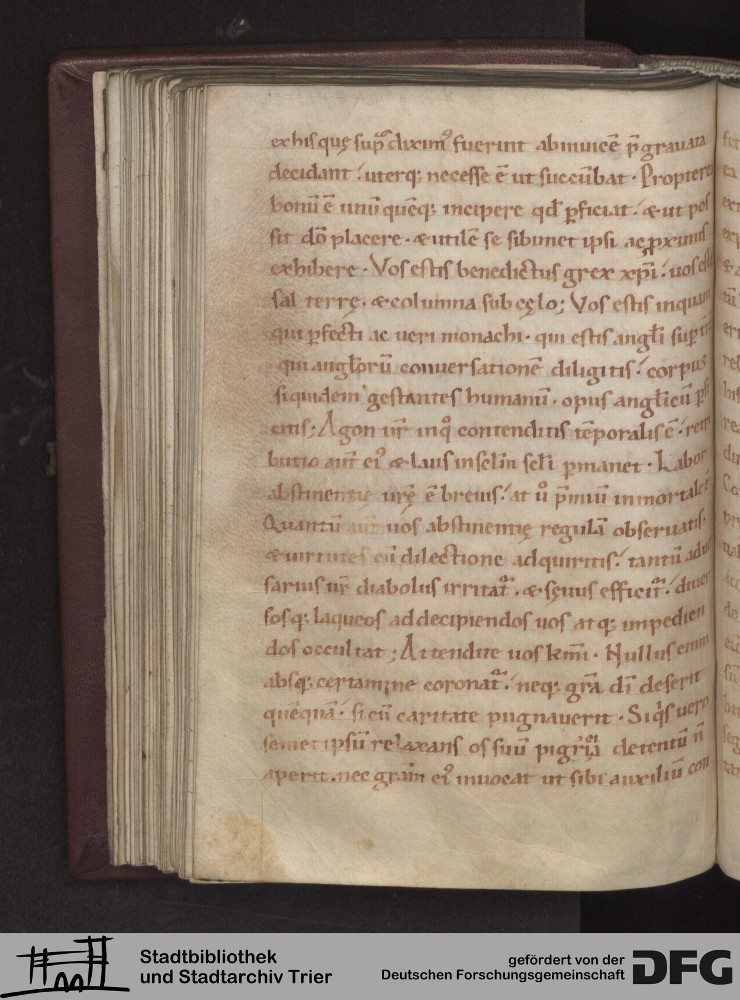 ex his quę sup̄ dixim᷒ fuerint ab inuicē p̄grauata
decidant. uterq; necesse ē ut succūbat. Propterea
bonū ē unū quēq; incipere qd̄ ꝑficiat. & ut pos
sit dō placere. & utilē se sibimet ipsi ac ꝓximis
exhibere. Vos estis benedictus grex xp̄i. uos estis
sal terrę. & columna sub cęlo; Vos estis inquam
qui ꝑfecti ac ueri monachi. qui estis angl̄i sup
qui angl̄orū conuersationē diligitis. corpus
siquidem gestantes humanū. opus angl̄icū
citis; Agon ur̄ in q᷒ contenditis tēporalis ē. retri
butio aūt ei᷒ & laus in scl̄m scl̄i ꝑmanet. Labor
abstinentię urę̄ ē breuis. at ū p̄miū inmortale ē
Quantū aūt uos abstinentię regulā obseruatis.
& uirtutes cū dilectione adquiritis. tantū aduer
sarius ur̄ diabolus irritat᷑. & sęuus efficit᷑. diuer
sosq; laqueos ad decipiendos uos atq; impedien
dos occultat; Attendite uos km̄i. Nullus enim
absq; certamine coronat᷑. neq; gr̄a dī deserit
quēquā. si cū caritate pugnauerit. Siq̇s uero
semet ipsū relaxans os suū pigritia detentū n̄
aperit. nec gr̄am ei᷒ inuocat ut sibi auxiliū con
Stadtbibliothek
und Stadtarchiv Trier
gefördert von der
Deutschen Forschungsgemeinschaft
DFG